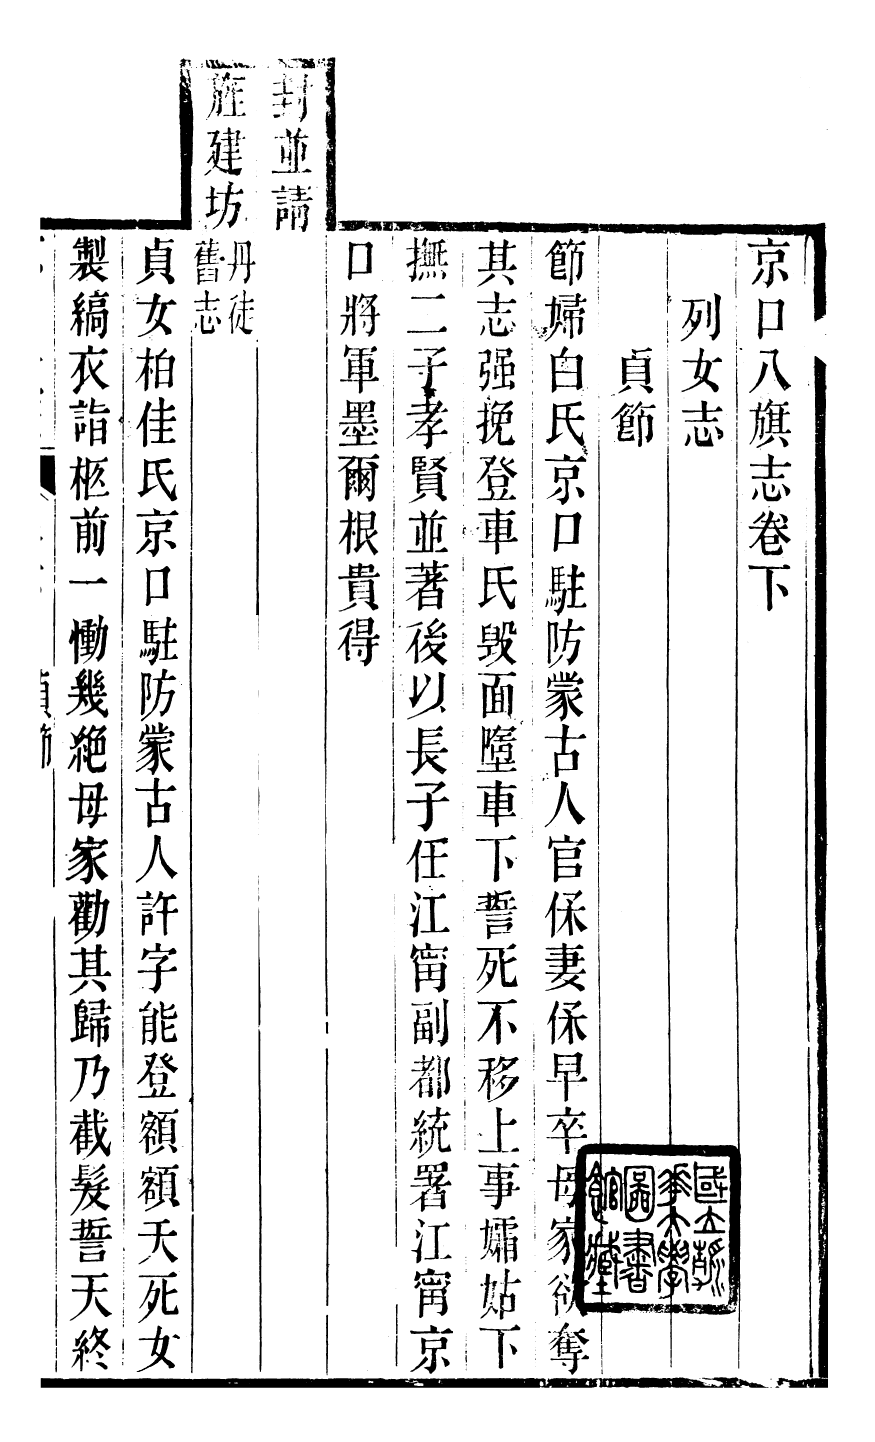 京口八旗志卷下
列女志
貞節
節婦白氏京口駐防蒙古人官保妻保早卒母家欲奪
其志强挽登車氏毁面墮車下誓死不移上事孀姑下
撫二子孝賢並著後以長子任江甯副都統署江甯京
口將軍墨爾根貴得
封並請
旌建坊丹徒
舊志
貞女柏佳氏京口駐防蒙古人許字能登額額夭死女
製縞衣詣柩前一慟幾絶母家勸其歸乃截髮誓天終
貞節
國立
大學
圖書
館藏